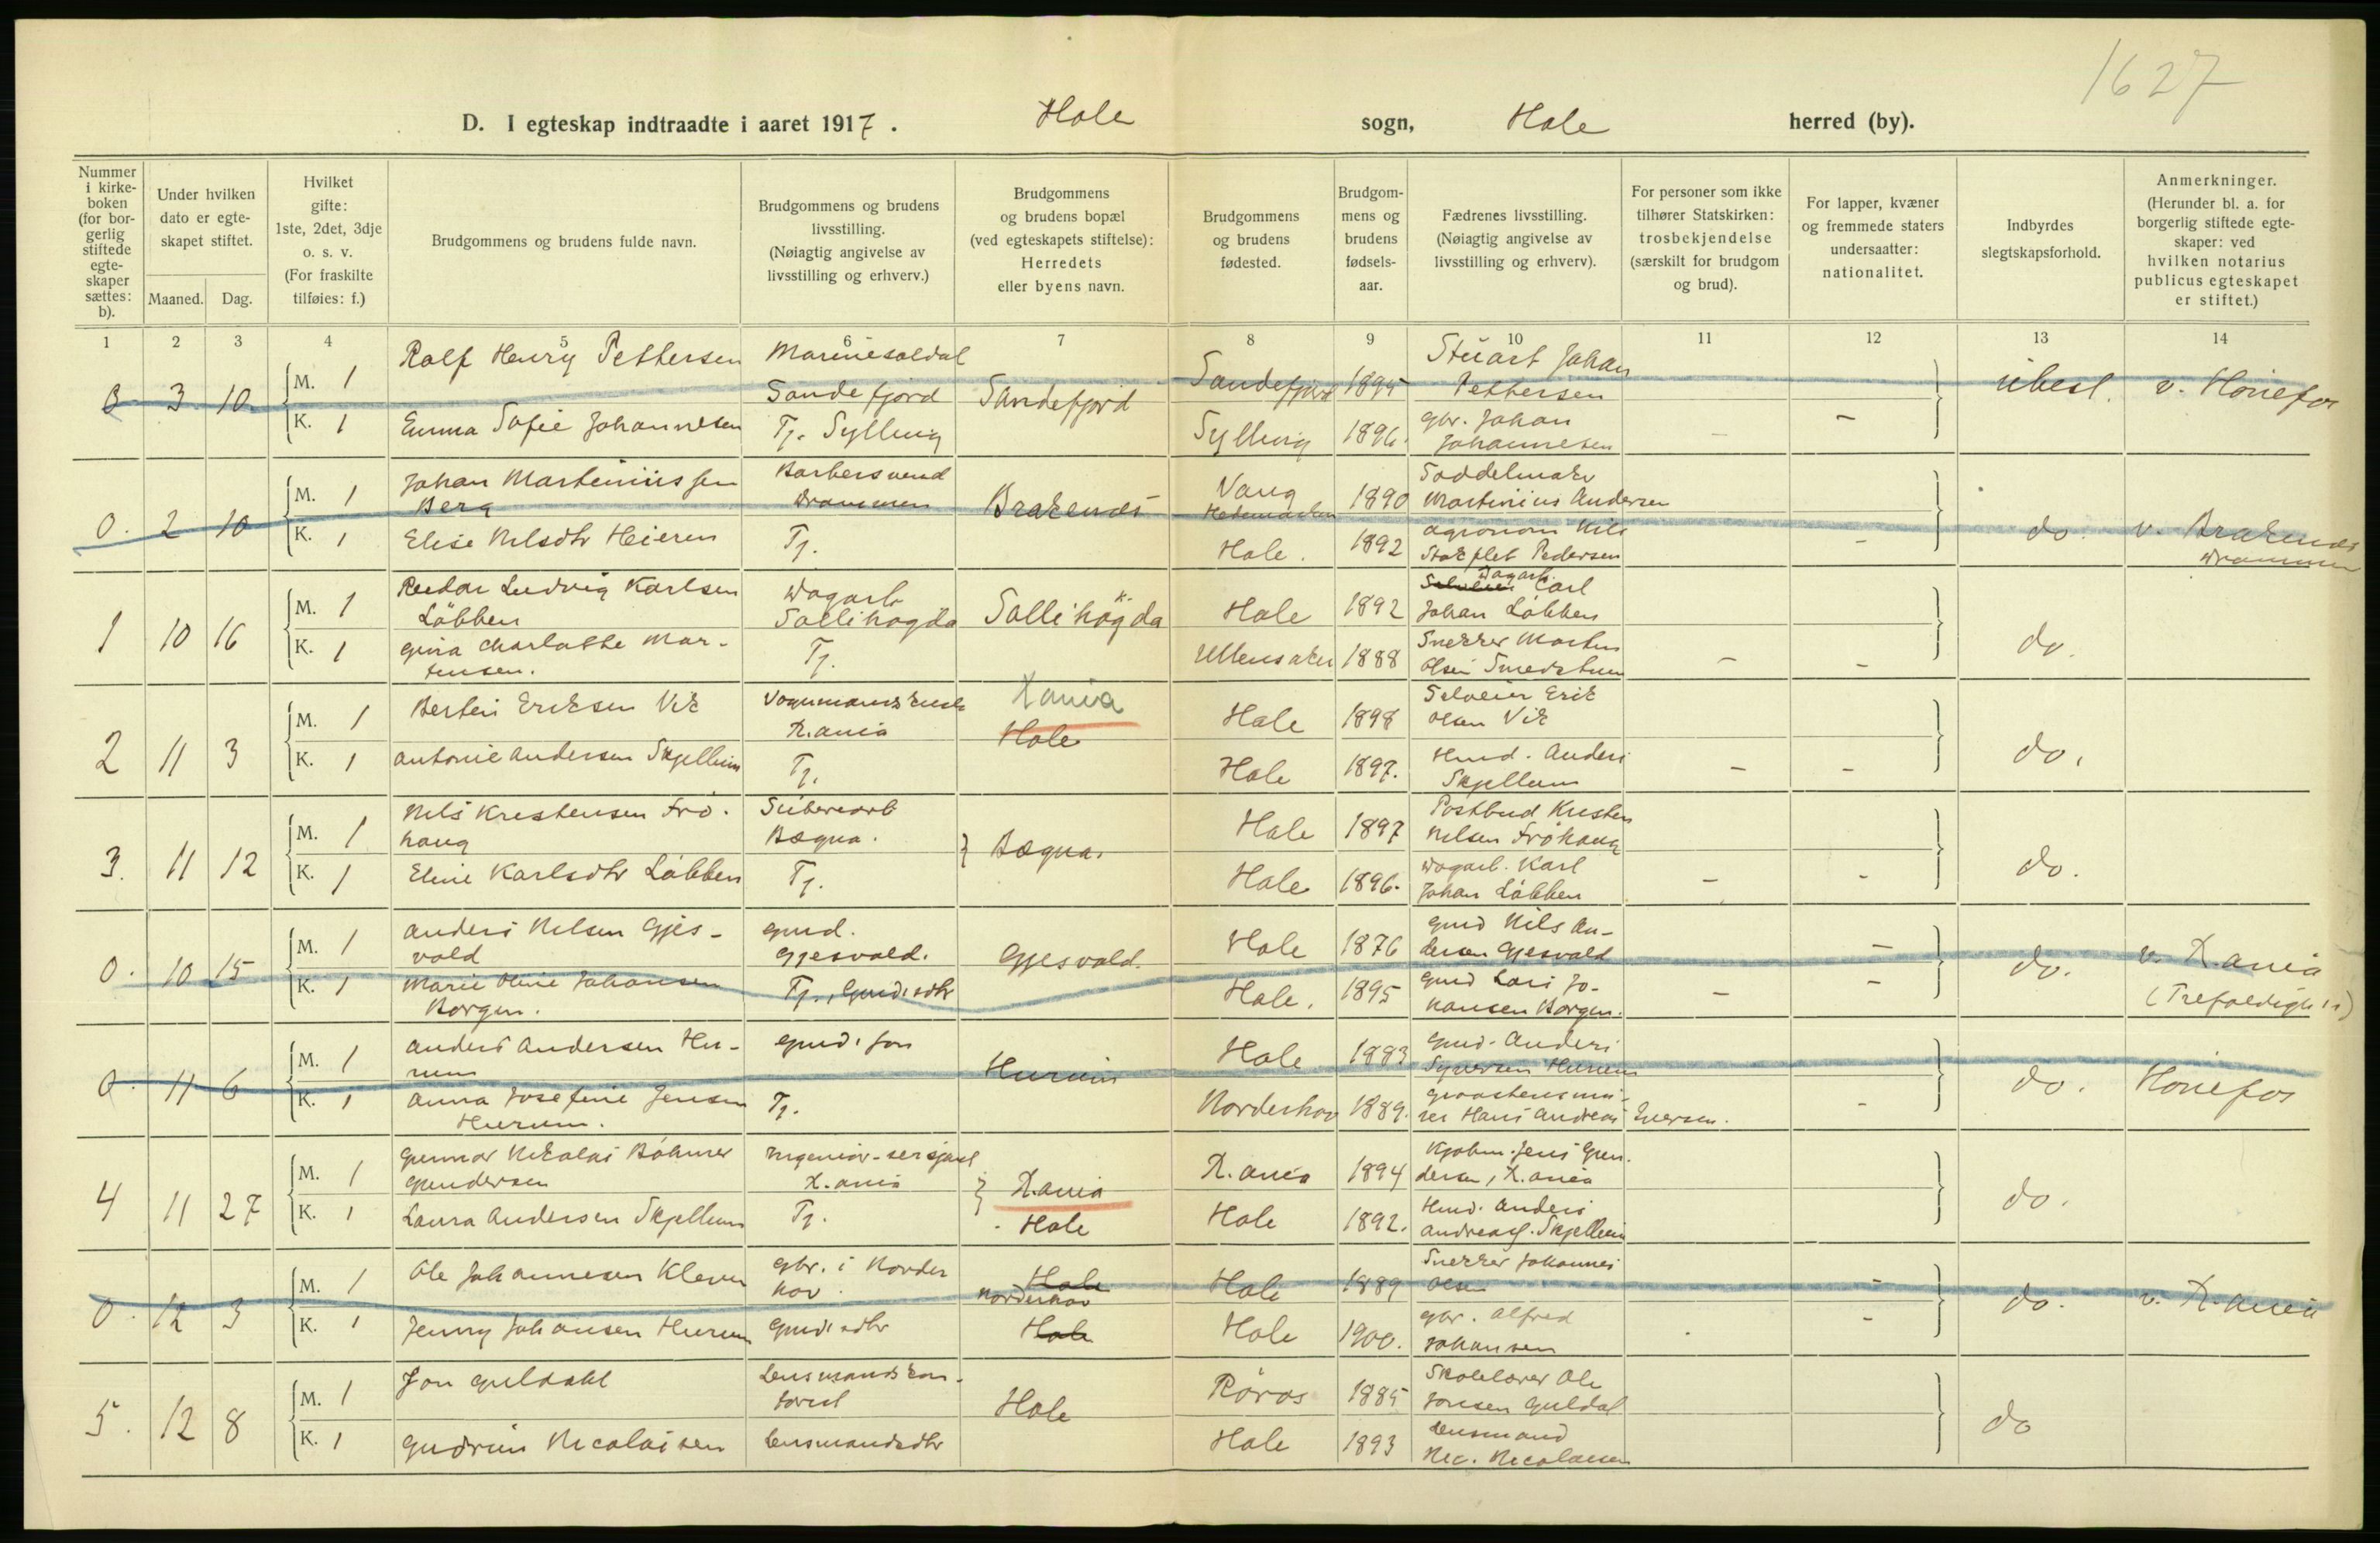 1627
D. I egteskap indtraadte i aaret 1917. Hole sogn, Hole herred (by).
Nummer i kirke-boken (for bor-gerlig stiftede egte-skaper sættes: b).
Under hvilken dato er egte-skapet stiftet.
Maaned. Dag.
Hvilket gifte: 1ste, 2det, 3dje o. s. v. (For fraskilte tilføies: f.)
Brudgommens og brudens fulde navn.
Brudgommens og brudens livsstilling. (Nøiagtig angivelse av livsstilling og erhverv.)
Brudgommens og brudens bopæl (ved egteskapets stiftelse): Herredets eller byens navn.
Brudgommens og brudens fødested.
Brudgom-mens og brudens fødsels-aar.
Fædrenes livsstilling. (Nøiagtig angivelse av livsstilling og erhverv).
For personer som ikke tilhører Statskirken: trosbekjendelse (særskilt for brudgom og brud).
For lapper, kvæner og fremmede staters undersaatter: nationalitet.
Indbyrdes slegtskapsforhold.
Anmerkninger. (Herunder bl. a. for borgerlig stiftede egte-skaper: ved hvilken notarius publicus egteskapet er stiftet.)
1 2 3 4 5 6 7 8 9 10 11 12 13 14
0 3 10 M. 1 Rolf Henry Pettersen Marinesoldat Sandefjord Sandefjord Sandefjord 1895 Stuart Johan Pettersen ubesl. v. Hönefos
K. 1 Emma Sofie Johannesen Tj. Sylling Sylling 1896. gbr. Johan Johannesen - -
0. 2 10 M. 1 Johan Martiniussen Berg Barbersvend Drammen Bragernes Vang Hedemarken 1890 Saddelmaker Martinius Andersen do. v. Bragernes Drammen
K. 1 Elise Nilsdtr Heieren Tj. Hole. 1892 agronom Nils Stokflet Pedersen -
1 10 16 M. 1 Reidar Ludvig Karlsen Löbben Dagarb. Sollihögda Sollihögda Hole 1892 Dagarb. Carl Johan Löbben do.
K. 1 Gina Charlotte Mar-tensen. Tj. Ullensaker 1888 Snekker Morten Olsen Smedstuen - -
2 11 3 M. 1 Bertin Eriksen Vik Vognmandskusk K.ania Kania Hole Hole 1898 Selveier Erik Olsen Vik do.
K. 1 Antonie Andersen Skjellum Tj. Hole 1897. Hmd. Anders Skjellum - -
3. 11 12 M. 1 Nils Kristensen Frö-haug Sliberiarb Bægna. } Bægna. Hole 1897 Postbud Kristen Nilsen Fröhaug do.
K. 1 Eline Karlsdtr Löbben Tj. Hole 1896. Dagarb. Karl Johan Löbben - -
0. 10 15 M. 1 Anders Nilsen Gjes-vold Gmd. Gjesvold. Gjesvold. Hole 1876 Gmd Nils An-dersen Gjesvold - do. v. K.ania (Trefoldigh.)
K. 1 Marie Oline Johansen Borgen. Tj., Gmd.sdtr Hole. 1895 Gmd Lars Jo-hansen Borgen. - -
0. 11 6 M. 1 Anders Andersen Hu-rum Gmd.søn Hurum Hole 1883 Gmd. Anders Syversen Hurum do. Hönefos
K. 1 Anna Josefine Jensen Hurum. Tj. Norderhov 1889. graastensmu-rer Hans Andreas Iversen. -
4 11 27 M. 1 Gunnar Nikolai Böhmer Gundersen Ingeniør-sersjant K.ania } K.ania Hole K.ania 1894 Kjøbm. Jens Gun-dersen, K.ania do.
K. 1 Laura Andersen Skjellum Tj. Hole 1892. Hmd. Anders Andreas. Skjellum
0. 12 3 M. 1 Ole Johannesen Kleven gbr. i Norder hov. Hole Norderhov Hole 1889 Snekker Johannes Olsen - do. v. K.ania
K. 1 Jenny Johansen Hurum Gmd.sdtr Hole Hole 1900. gbr. Alfred Johansen -
5. 12 8 M. 1 Jon Guldahl Lensmandskon-torist Hole Röros 1885 Skolelærer Ole Jonsen Guldal do
K. 1 Gudrun Nicolaisen Lensmandsdtr Hole 1893 Lensmand Nic. Nicolaisen